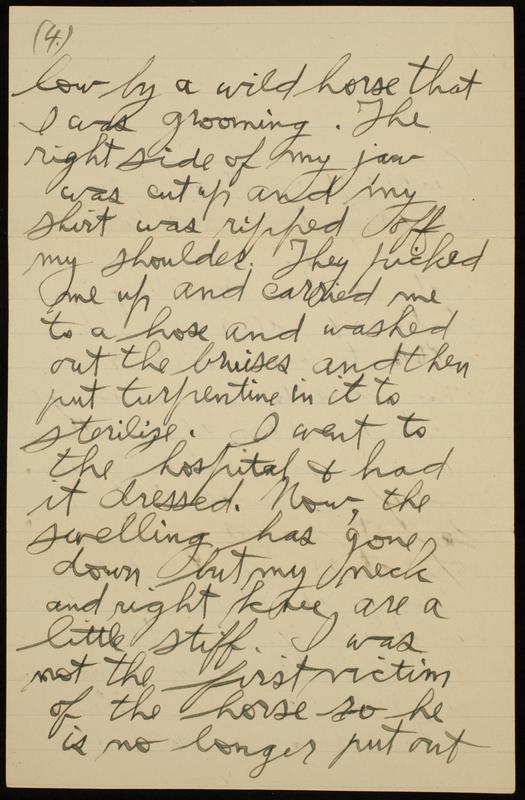 (4.)
low by a wild horse that
I was grooming. The
right side of my jaw
was cut up and my
shirt was ripped off
my shoulder. They picked
me up and carried me
to a hose and washed
out the bruises and then
put turpentine in it to
sterilize. I went to
the hospital & had
it dressed. Now, the
swelling has gone
down but my neck
and right knee are a
little stiff. I was
not the first victim
of the horse so he
is no longer put out